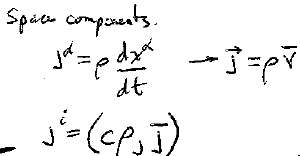 Space components.
j^α = ρ dx^α/dt → j⃗ = ρ v̄
j^i = (cρ, j̄)